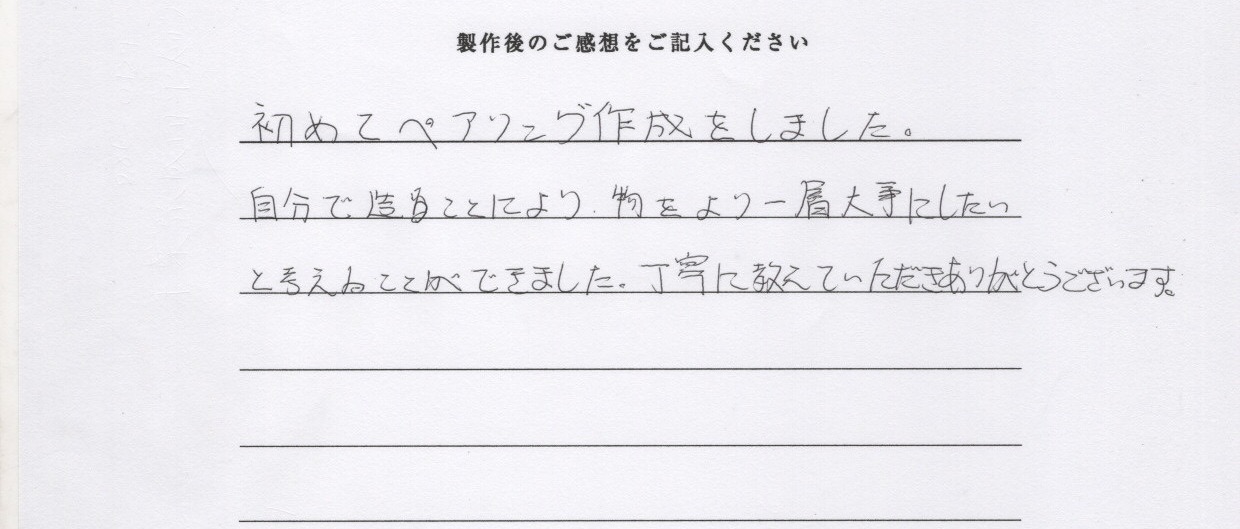 製作後のご感想をご記入ください
初めてペアリング作成をしました。
自分で造ることにより、物をより一層大事にしたい
と考えることができました。丁寧に教えていただきありがとうございます。